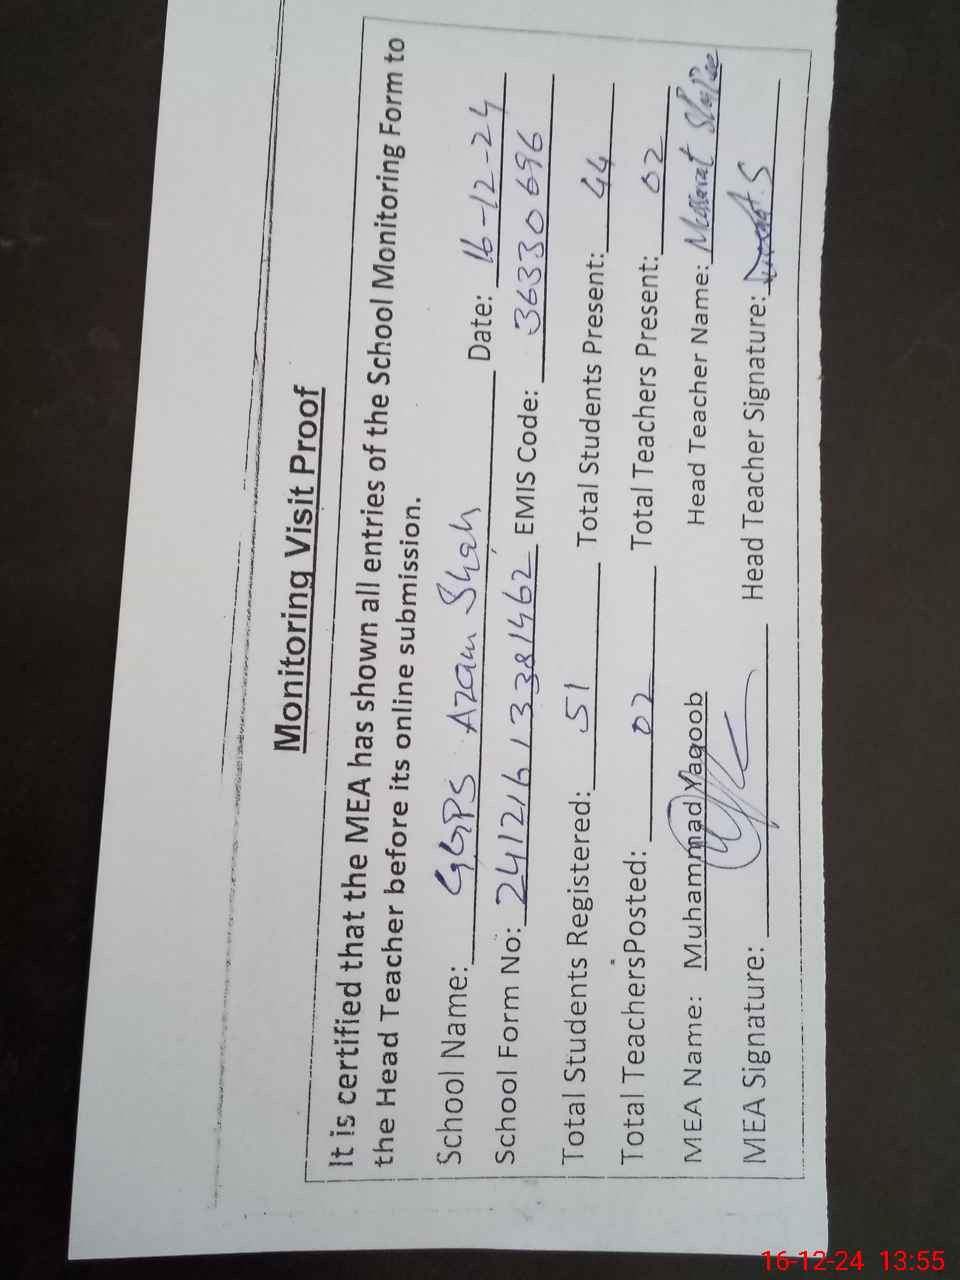 Monitoring Visit Proof
It is certified that the MEA has shown all entries of the School Monitoring Form to
the Head Teacher before its online submission.
School Name: GGPS Azam Shah Date: 16-12-24
School Form No: 24121613381462 EMIS Code: 36330696
Total Students Registered: 51 Total Students Present: 44
Total TeachersPosted: 02 Total Teachers Present: 02
MEA Name: Muhammad Yaqoob Head Teacher Name: Musarat
MEA Signature: Head Teacher Signature:
16-12-24 13:55